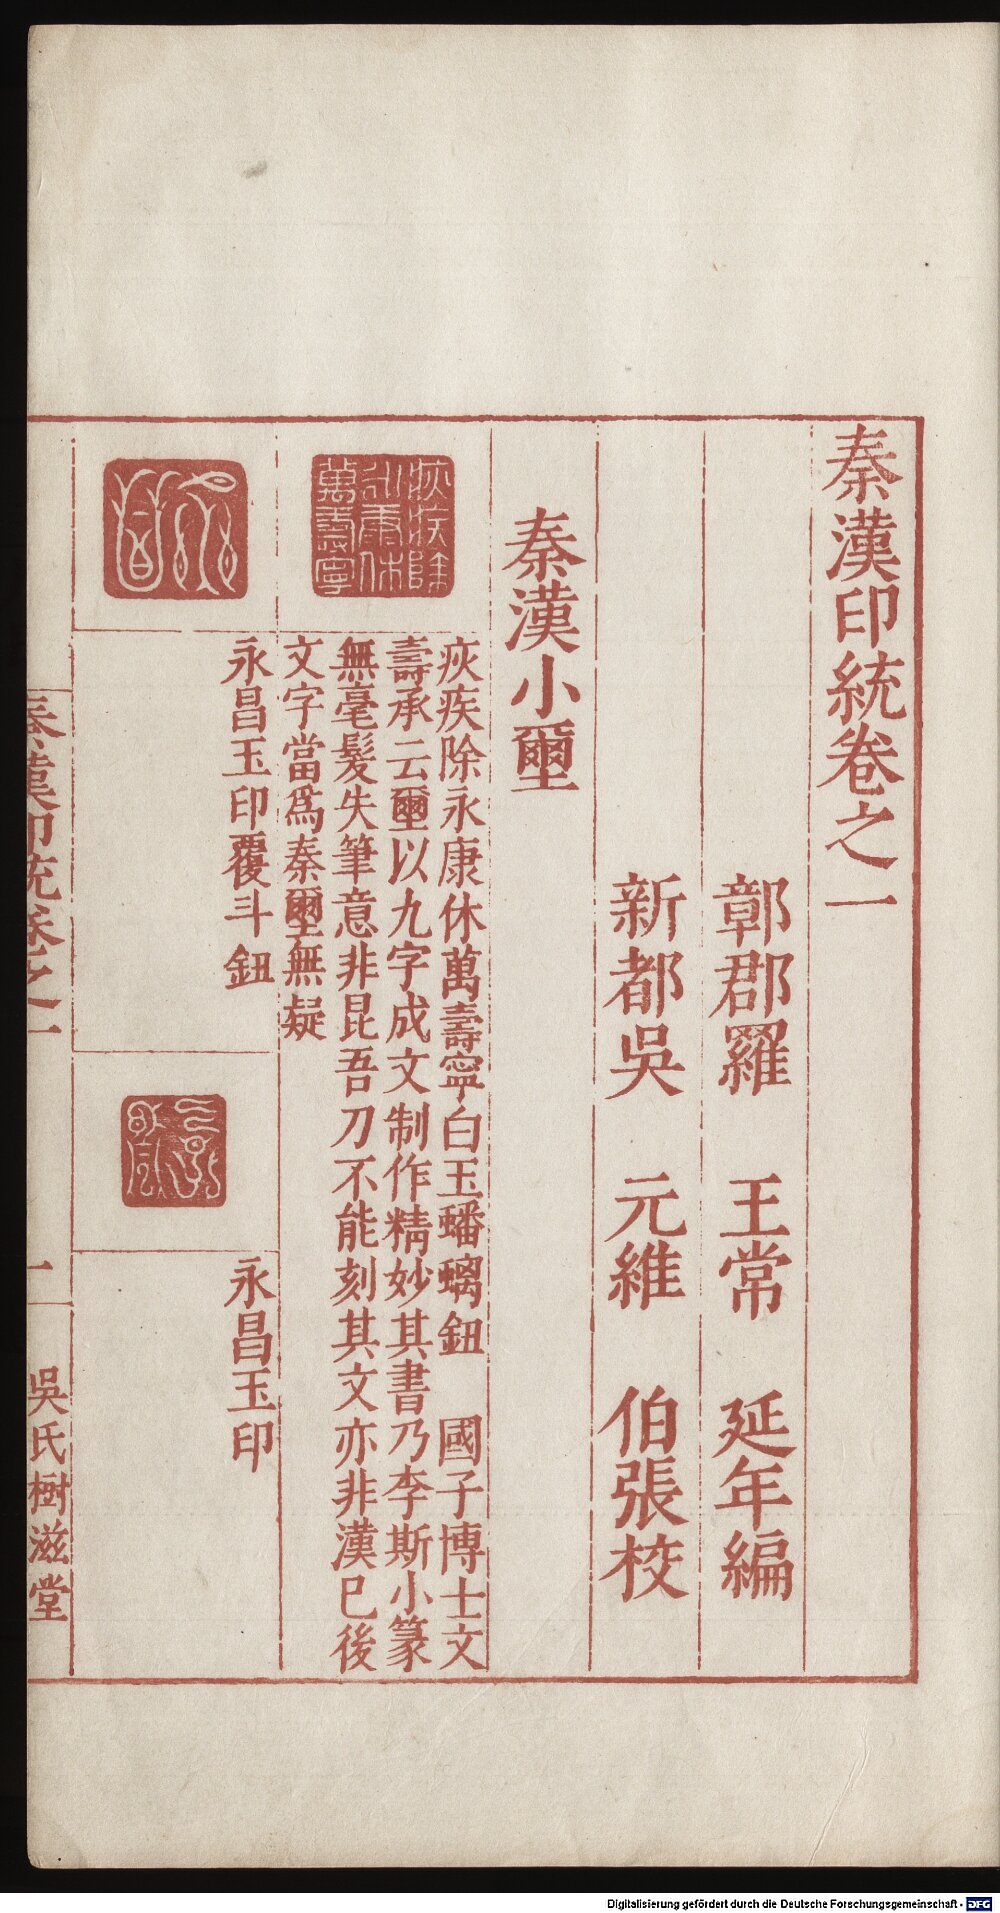 秦漢印統卷之一
鄣郡羅　王常　延年編
新都吳　元維　伯張校
秦漢小璽
疢疾除永康休萬壽寧
疢疾除永康休萬壽寧白玉蟠螭鈕　國子博士文
壽承云璽以九字成文制作精妙其書乃李斯小篆
無毫髮失筆意非昆吾刀不能刻其文亦非漢已後
文字當爲秦璽無疑
永昌
永昌玉印覆斗鈕
永昌玉印
秦漢印統卷之一
一
吳氏樹滋堂
Digitalisierung gefördert durch die Deutsche Forschungsgemeinschaft - DFG